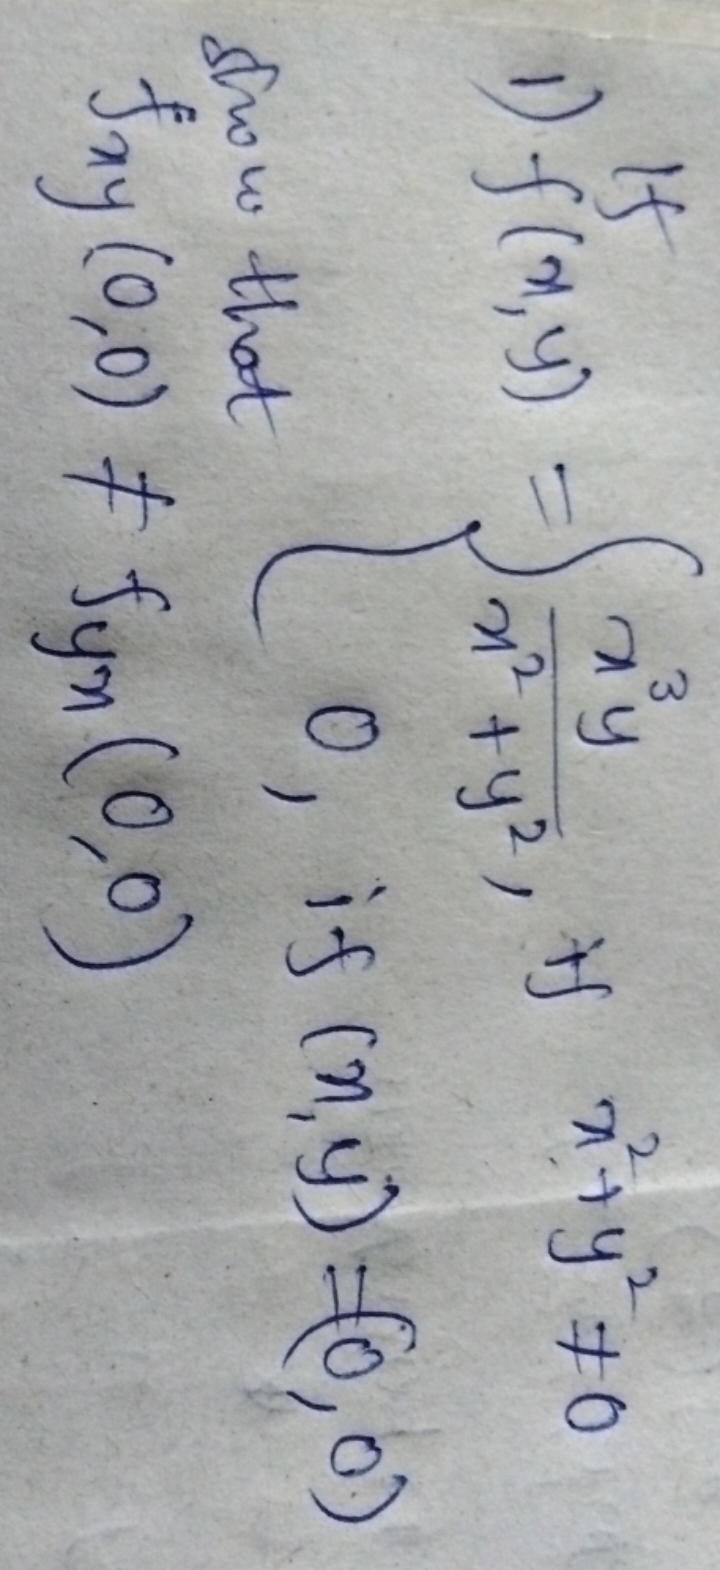 If
1) f(x,y) = { x³y / x² + y² , if x² + y² ≠ 0
0, if (x,y) = (0,0)
show that
fxy (0,0) ≠ fyx (0,0)